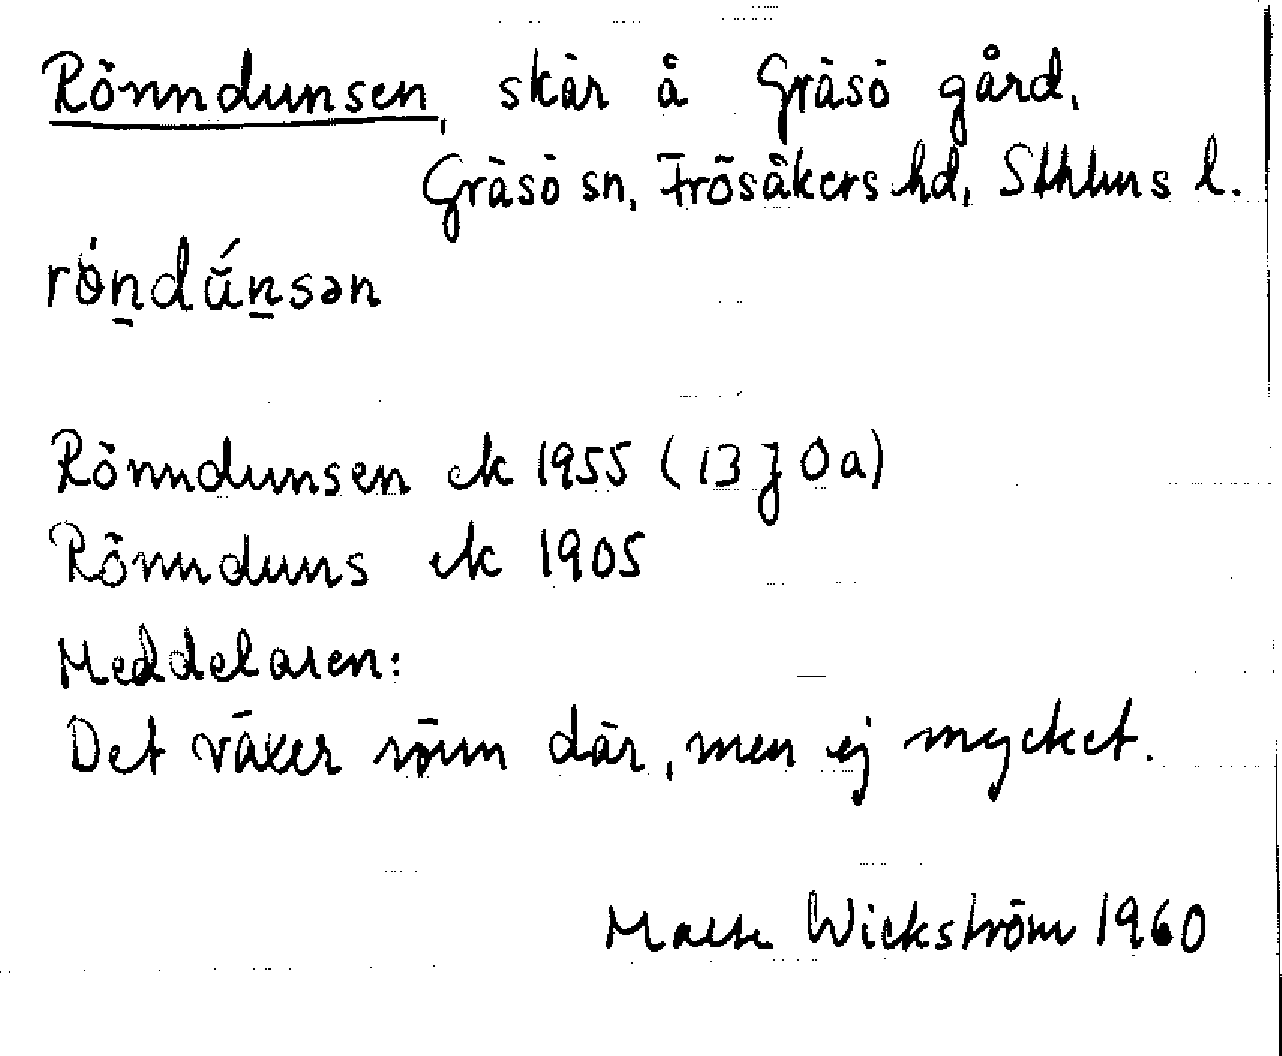 Rönndunsen, skär å Gräsö gård,
Gräsö sn, Frösåkers hd, Sthlms l.
rö́n̲dŭ́n̲sən
Rönndunsen ek 1955 (13J0a)
Rönnduns ek 1905
Meddelaren:
Det växer rönn där, men ej mycket.
Wickström 1960